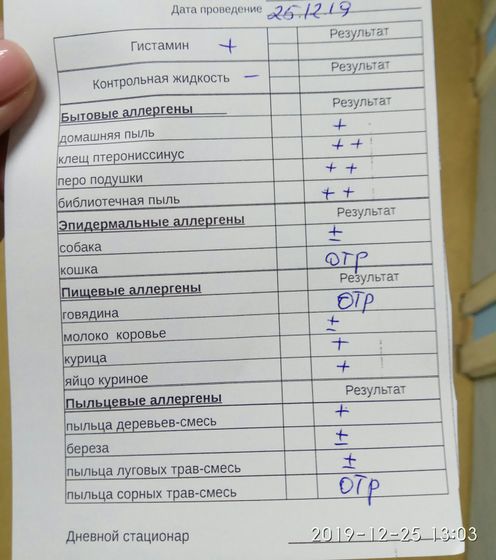 Дата проведение 25.12.19
Гистамин + Результат
Контрольная жидкость – Результат
Бытовые аллергены Результат
домашняя пыль +
клещ птерониссинус ++
перо подушки ++
библиотечная пыль ++
Эпидермальные аллергены Результат
собака ±
кошка ОТР
Пищевые аллергены Результат
говядина ОТР
молоко коровье ±
курица +
яйцо куриное +
Пыльцевые аллергены Результат
пыльца деревьев-смесь +
береза ±
пыльца луговых трав-смесь ±
пыльца сорных трав-смесь ОТР
Дневной стационар
2019-12-25 13:03